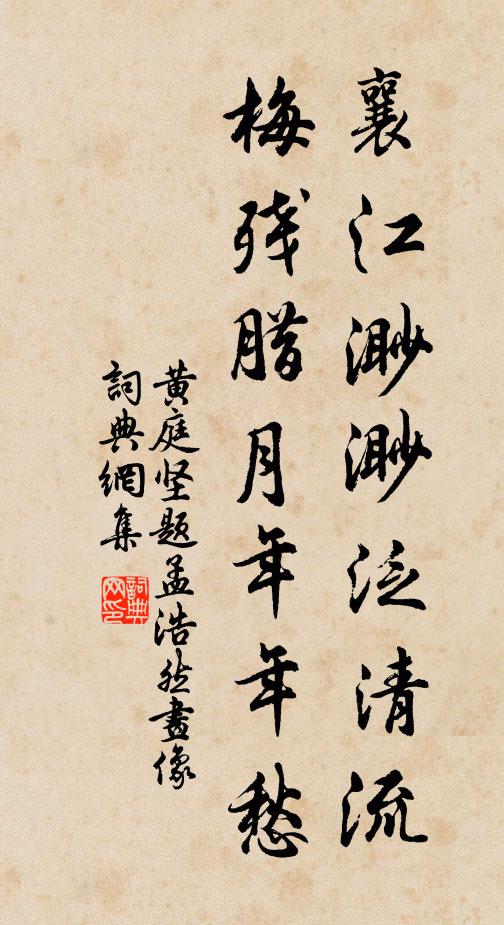 襄江渺渺泛清流
梅残腊月年年愁
黄庭坚题孟浩然畫像
詞典網集
詞典網印